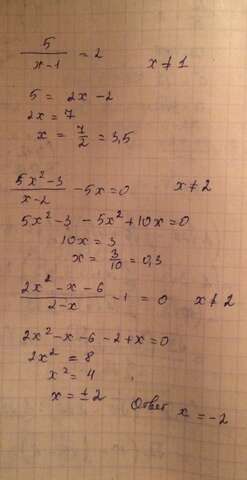 5/(x-1) = 2 x ≠ 1
5 = 2x - 2
2x = 7
x = 7/2 = 3,5
(5x² - 3)/(x-2) - 5x = 0 x ≠ 2
5x² - 3 - 5x² + 10x = 0
10x = 3
x = 3/10 = 0,3
(2x² - x - 6)/(2-x) - 1 = 0 x ≠ 2
2x² - x - 6 - 2 + x = 0
2x² = 8
x² = 4
x = ±2 Ответ x = -2